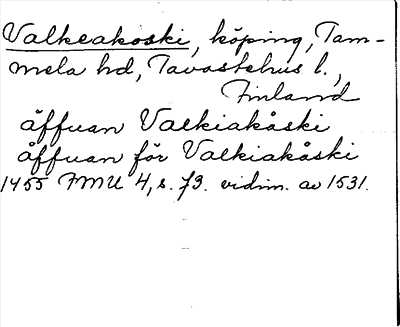 Valkeakoski, köping, Tam-
mela hd, Tavastehus l.,
Finland
åffuan Valkiakåski
åffuan för Valkiakåski
1455 FMU 4, s. 73. vidim. av 1531.